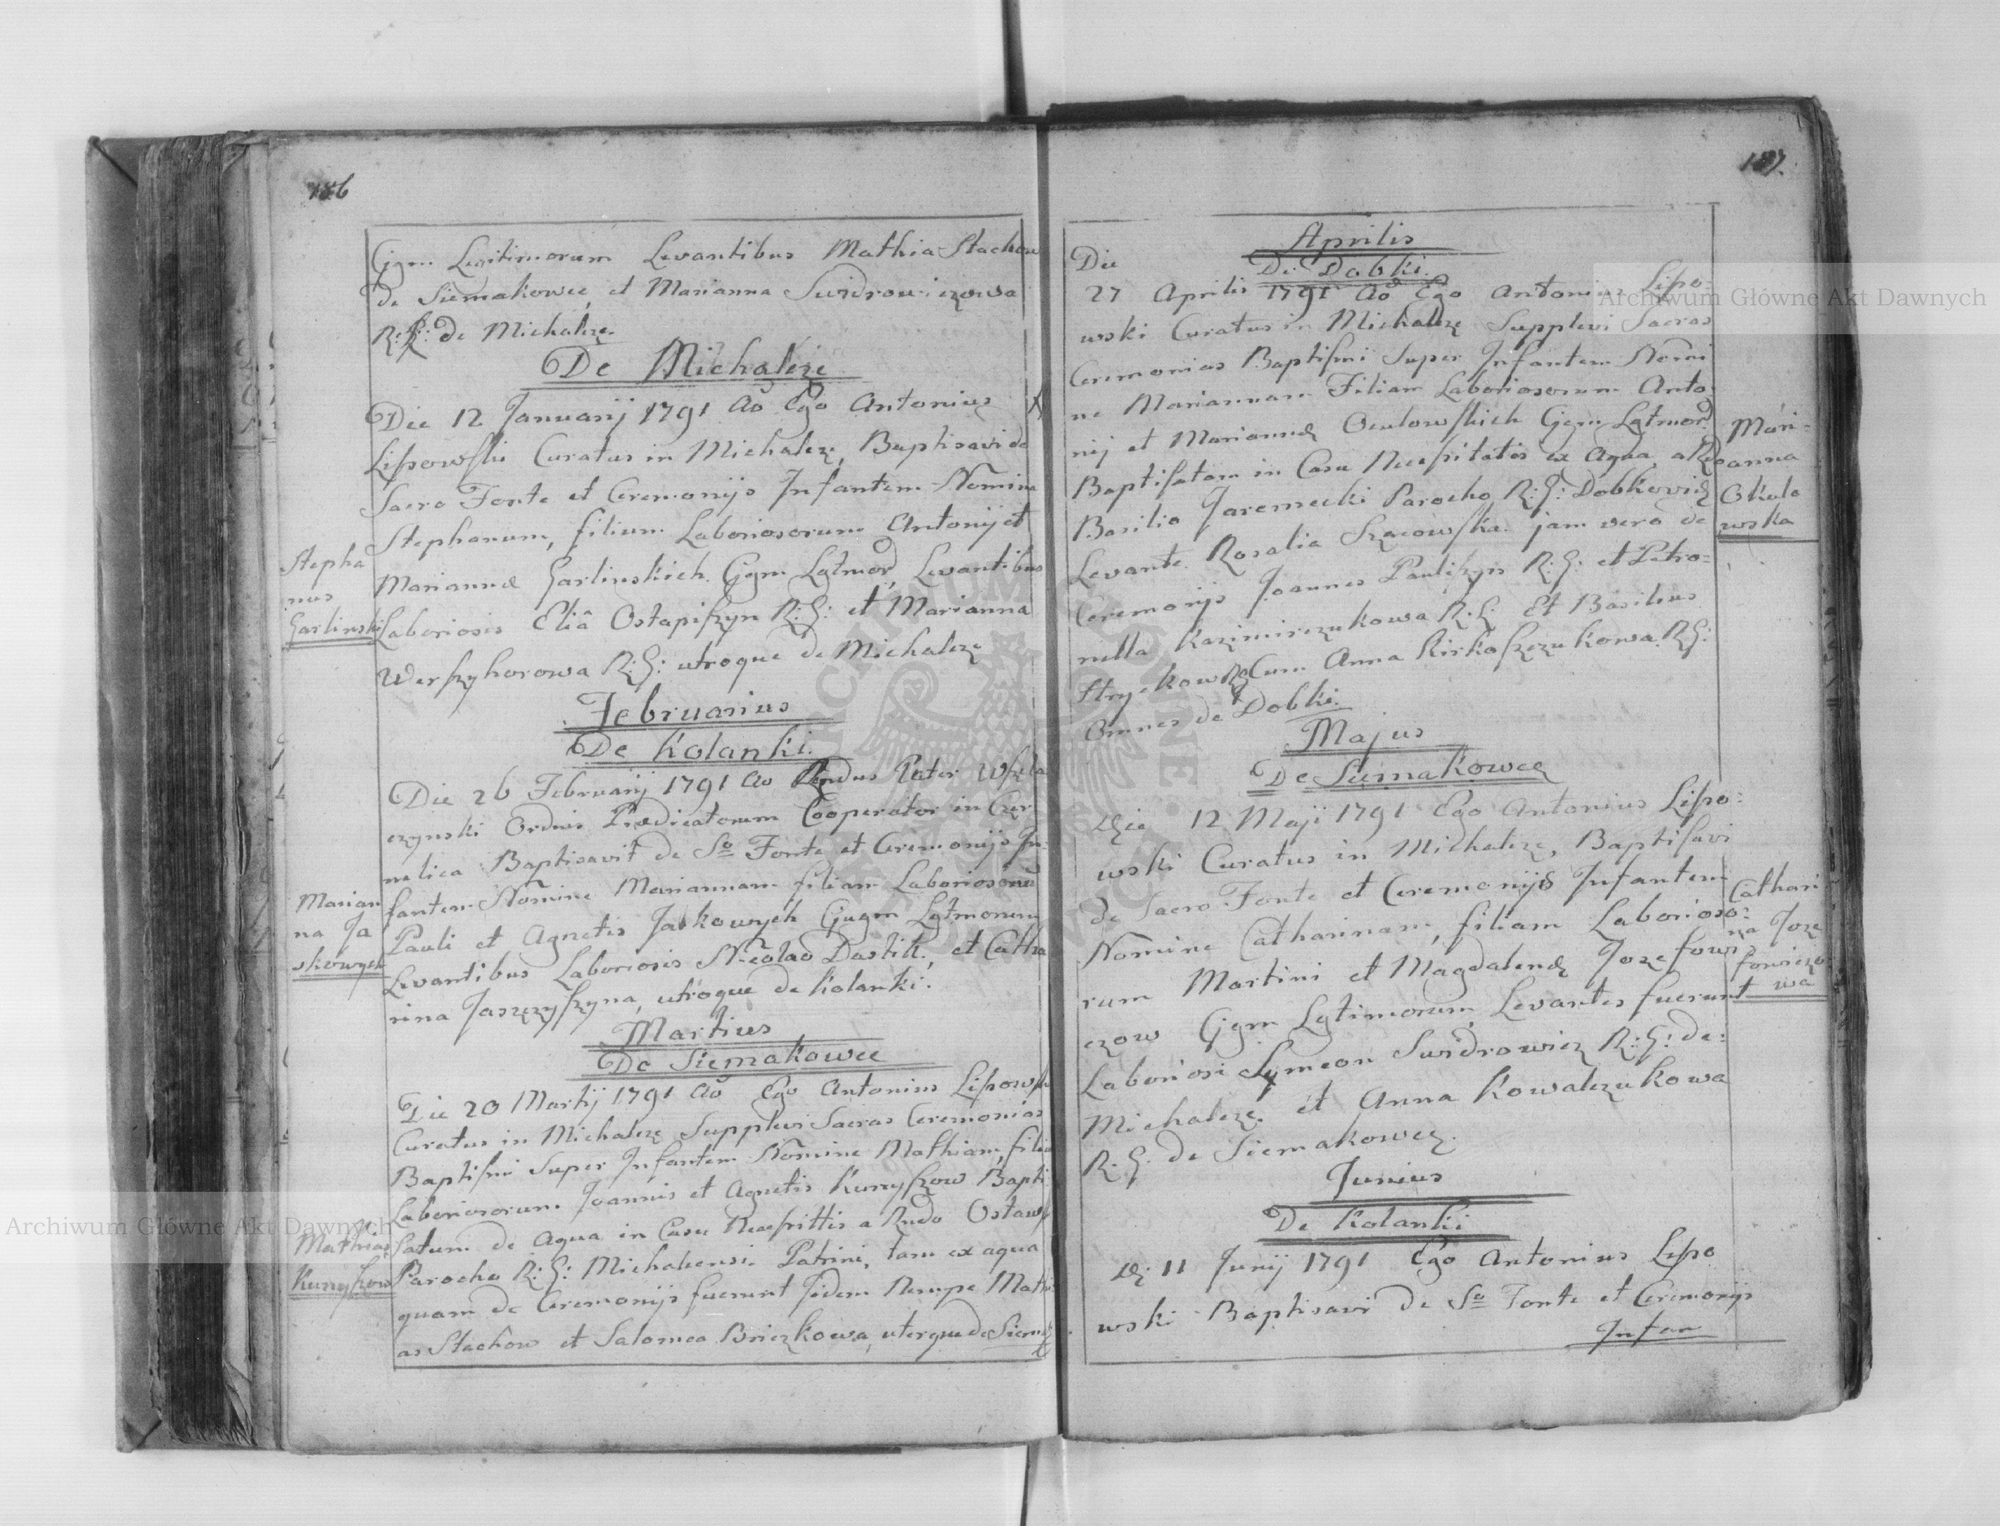 186
Cjgm Legitimorum Levantibus Mathia Stachow
de Siemakowce, et Marianna Swidrowiczowa
R: G: de Michalcze.
De Michalcze
Die 12 Januarij 1791 Aō Ego Antonius
Lipowski Curatus in Michalcze, Baptisavi de
Sacro Fonte et Ceremonijs Infantem Nomine
Stephanum, filium Laboriosorum Antonij et
Mariannæ Garlinskich Cjgm Lgtmor, Levantibus
Laboriosis Eliâ Ostapiszyn R: G: et Marianna
Werszyhorowa R: G: utroque de Michalcze
Stepha
nus
Garlinski
Februarius
De Kolanki.
Die 26 Februarij 1791 Ao Rndus Pater
czynski Ordinis Prædicatorum Cooperator in Czer
nelica Baptisavit de So Fonte et Ceremonijs In-
fantem Nomine Mariannam filiam Laboriosorum
Pauli et Agnetis Jaskowych Cjugm Lgtmorum
Levantibus Laboriosis Nicolao Dastik, et Catha
rina Jaszczyszyna, utroque de Kolanki.
Marian
na Ja
skowych
Martius
De Siemakowce
Die 20 Martij 1791 Aō Ego Antonius Lipowski
Curatus in Michalcze Supplevi Sacras Ceremonias
Baptismi Super Infantem Nomine Mathiam, filium
Laboriosorum Joannis et Agnetis Kunyszow Bapti
satum de Aqua in Casu Necessittis a Rndo Ostaw
Parocho R: G: Michalcensi. Patrini, tam ex aqua
quam de Ceremonijs fuerunt Iidem Nempe Mathi
as Stachow et Salomea Briczkowa, uterque de Siemak
Mathias
Kunyszow
187.
Aprilis
De Dobki.
Die
27 Aprilis 1791 Aō Ego Antonius Lipo-
wski Curatus in Michalcze Supplevi Sacras
Ceremonias Baptismi Super Infantem Nomi
ne Mariannam Filiam Laboriosorum Anto
nij et Mariannæ Oculowskich Cjgm Lgtmor
Baptisatam in Casu Necessitatis ex Aqua a R
Basilio Jaremecki Parocho R: G: Dobkoviæ
Levante Rosalia jam vero de
Ceremonijs Joannes Pauliszyn R: G: et Petro-
nella Kazimirczukowa R: G: Et Basilius
Stryckow RG Cum Anna Kirkoszczukowa R: G:
Omnes de Dobki.
Mari-
anna
Okulo
wska
Majus
De Siemakowce
Die 12 Maji 1791 Ego Antonius Lipo-
wski Curatus in Michalcze, Baptisavi
de Sacro Fonte et Ceremonijs Infantem
Nomine Catharinam, filiam Laborioso-
rum Martini et Magdalenæ Jozefowi
czow Cjgm Lgtimorum, Levantes fuerunt
Laboriosi Symeon Swidrowicz R: G: de
Michalcze. et Anna Kowalczukowa
R: G: de Siemakowce.
Cathari
na Joze
fowiczo
wa
Junius
De Kolanki
Di 11 Junij 1791 Ego Antonius Lipo
wski Baptisavi de So Fonte et Ceremonijs
Infan
Archiwum Główne Akt Dawnych
Archiwum Główne Akt Dawnych